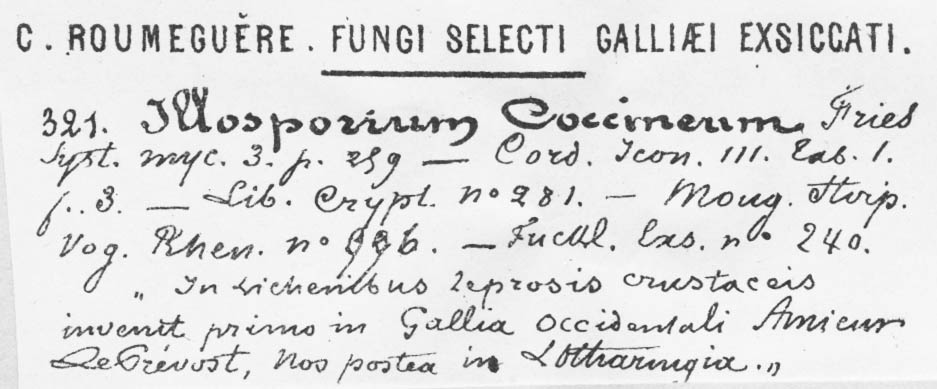 C. ROUMEGUĚRE. FUNGI SELECTI GALLIÆI EXSICCATI.
321. Illosporium Coccineum Fries
Syst. myc. 3. p. 259 — Cord. Icon. III. tab. 1.
f.. 3. — Lib. Crypt. nº 281. — Moug. Stirp.
Vog. Rhen. nº 996. — Fuckl. Exs. nº 240.
„ In Lichenibus leprosis crustaceis
invenit primo in Gallia occidentali Amicus
LePrévost, Nos postea in Lotharingia. „